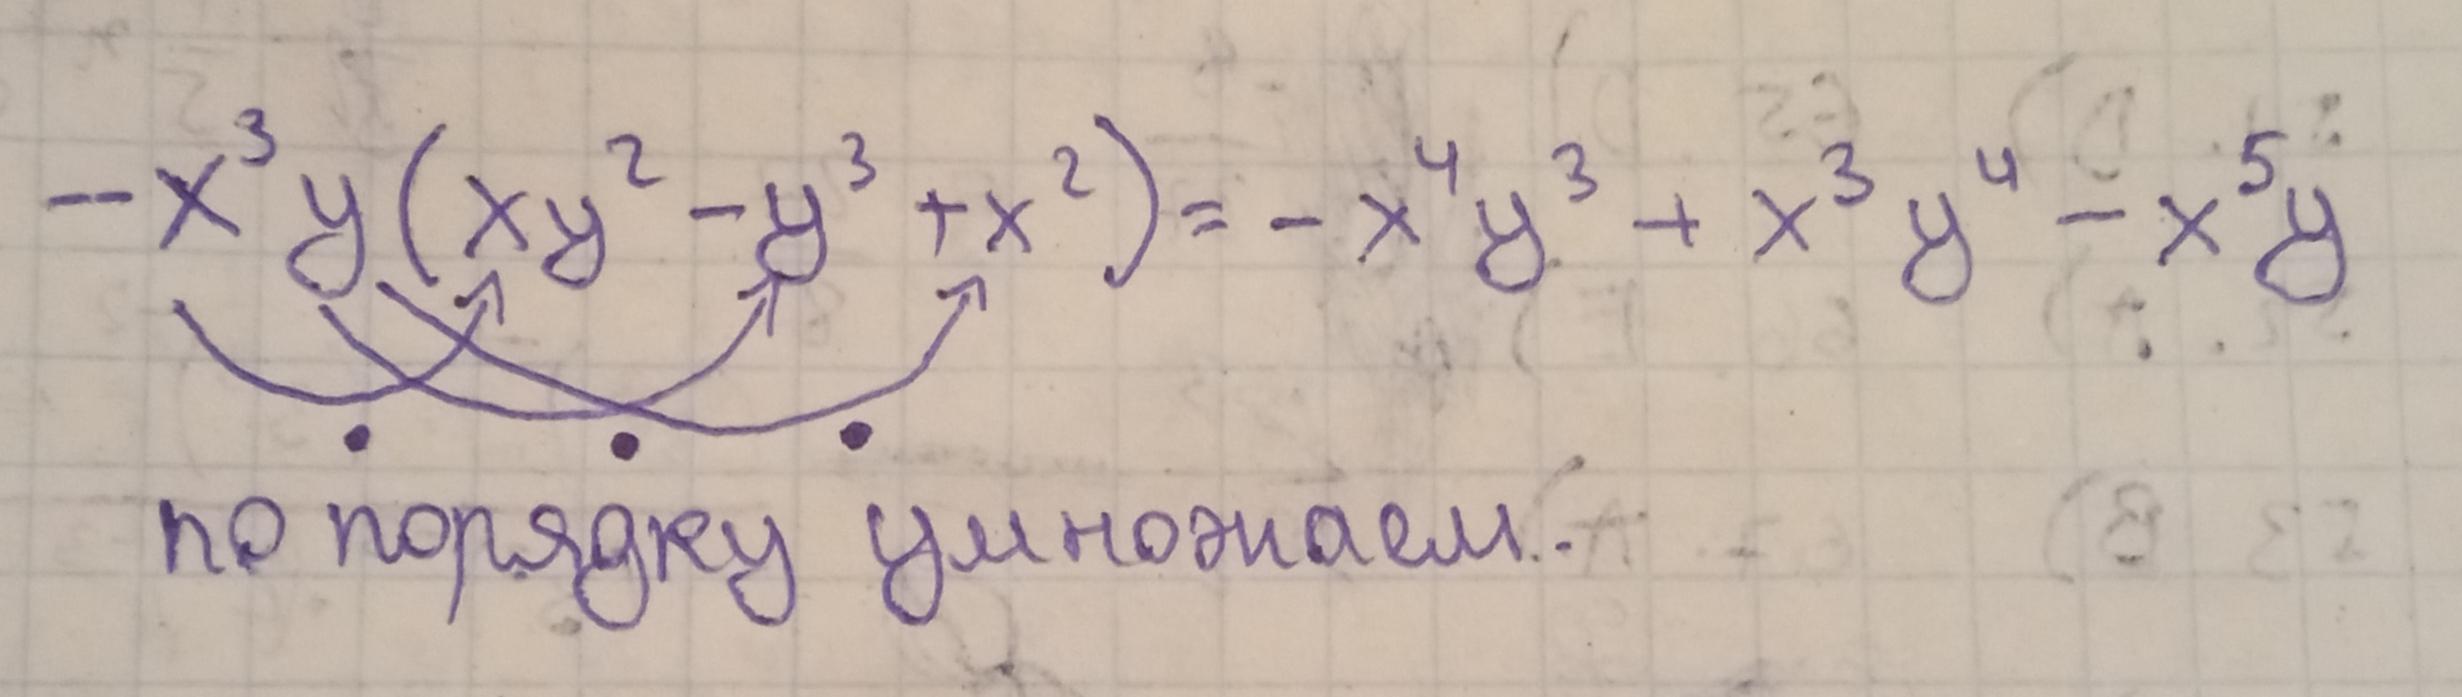 -x³y(xy²-y³+x²)=-x⁴y³+x³y⁴-x⁵y
по порядку умножаем.